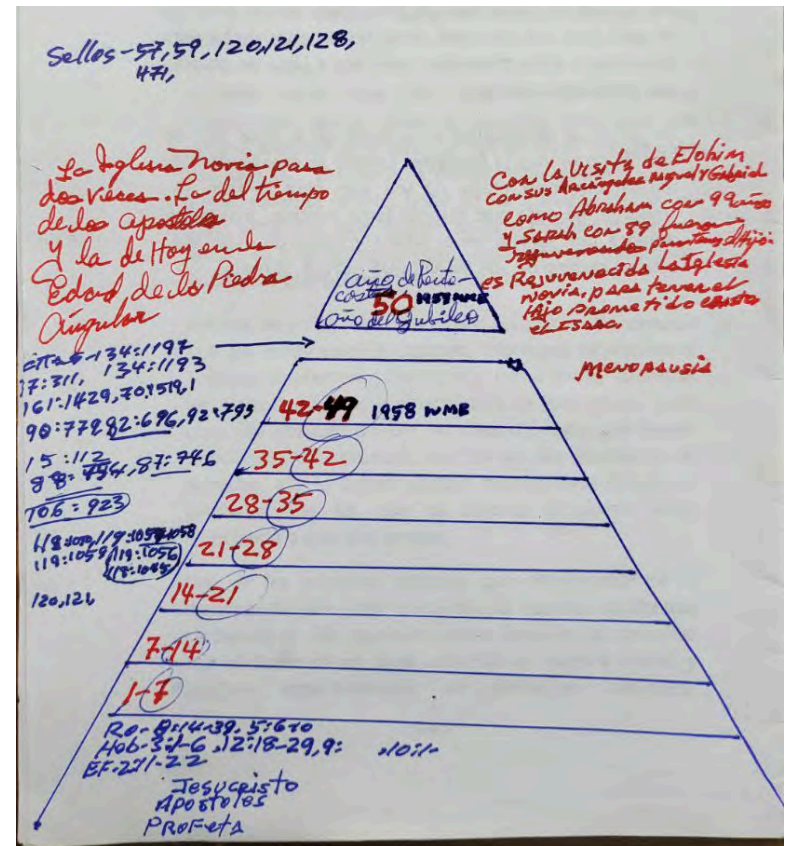 Sellos-57,59,120,121,128,
471,
La Iglesia Novia pasa
dos veces. La del tiempo
de los apostoles
Y la de Hoy en la
Edad de la Piedra
Angular
Con la Visita de Elohim
con sus Arcángeles Miguel y Gabriel
como Abraham con 99 años
Y SARAH con 89 fueron
es Rejuvenecida La Iglesia
Novia, para tener el
Hijo prometido
el ISAAC
menopausia
año de Pente-
costés
50
año del Jubileo
134:1197
17:311, 134:1193
161:1429,
90:779,82:696,92:793
15:112
87:746
106=923
119:1056
120,121
42-49 1958 WMB
35-42
28-35
21-28
14-21
7-14
1-7
Ro-8:14-39, 5:6-10
Heb-3:1-6, 12:18-29, 9:
EF-2:1-22
Jesucristo
Apostoles
PROFETA